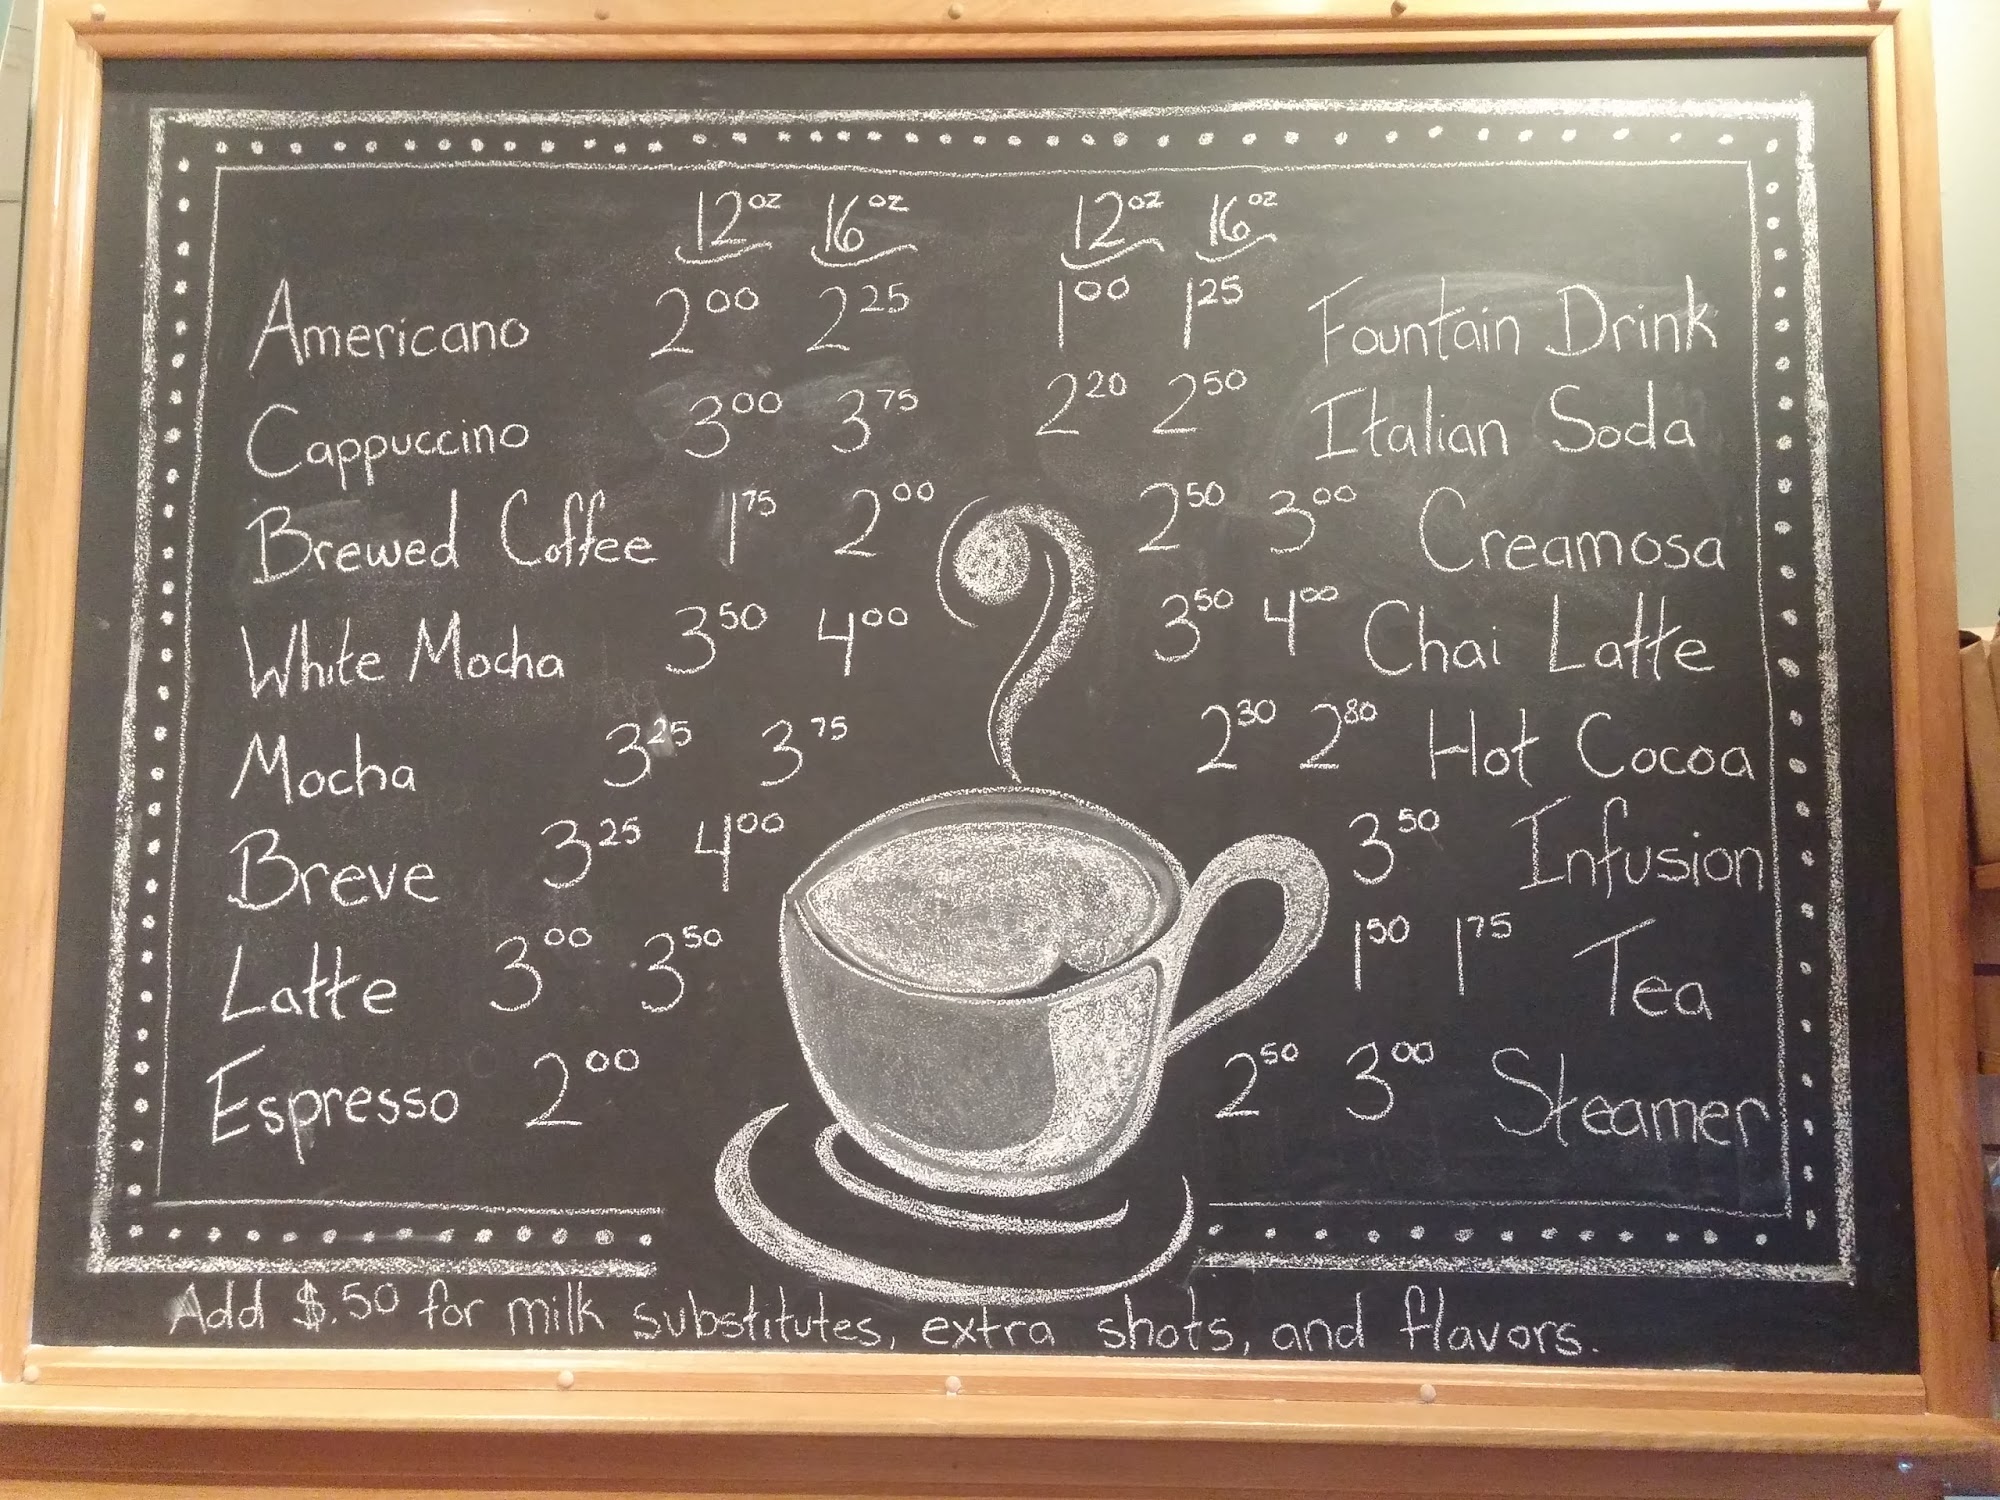 12oz 16oz 12oz 16oz
Americano 2 00 2 25 1 00 1 25 Fountain Drink
Cappuccino 3 00 3 75 2 20 2 50 Italian Soda
Brewed Coffee 1 75 2 00 2 50 3 00 Creamosa
White Mocha 3 50 4 00 3 50 4 00 Chai Latte
Mocha 3 25 3 75 2 30 2 80 Hot Cocoa
Breve 3 25 4 00 3 50 Infusion
Latte 3 00 3 50 1 50 1 75 Tea
Espresso 2 00 2 50 3 00 Steamer
Add $.50 for milk substitutes, extra shots, and flavors.